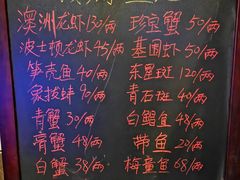 澳洲龙虾130/两 珍宝蟹50/两
波士顿龙虾45/两 基围虾50/两
笋壳鱼40/两 东星斑120/两
象拔蚌90/两 青石斑40/两
青蟹30/两 白鲳鱼48/两
膏蟹48/两 带鱼20/两
白蟹38/两 梅童鱼68/两